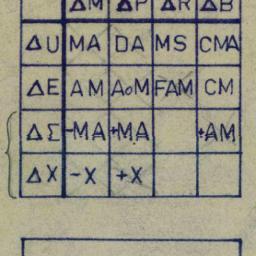 ΔM ΔP ΔR ΔB
ΔU MA DA MS CMA
ΔE AM AoM FAM CM
ΔΣ -MA +MA +AM
ΔX -X +X